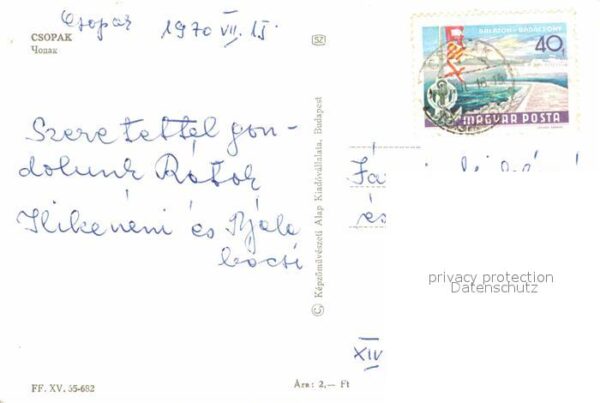 Csopak 1970 VII. 15.
CSOPAK
Чопак
SZ
BALATON - BADACSONY
40f
MAGYAR POSTA
Szeretettel gon-
dolunk Rátok
Ilikenéni és Béla
bácsi
© Képzőművészeti Alap Kiadóvállalata, Budapest
és
privacy protection
Datenschutz
XIV
FF. XV. 55-682
Ára: 2,— Ft